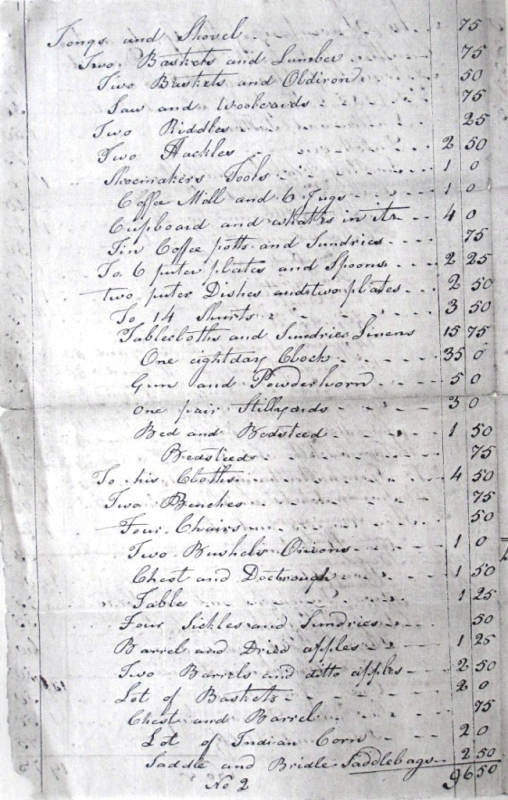 Tongs and Shovel 75
Two Baskets and Lumber 75
Two Baskets and Oldiron 50
Saw and Woolcards 75
Two Riddles 25
Two Hackles 2 50
Shoemakers Tools 1 0
Coffee Mill and 6 Jugs 1 0
Cupboard and whats in it 4 0
Tin Coffee potts and Sundries 75
To 6 puter plates and Spoons 2 25
two puter Dishes and two plates 2 50
To 14 Shurts 3 50
Tablecloths and Sundries Linens 15 75
One eightday Clock 35 0
Gun and Powderhorn 5 0
one pair Stillyards 3 0
Bed and Bedsteed 1 50
Bedsteed 75
To his Cloths 4 50
Two Benches 75
Four Chairs 50
Two Bushels Onions 1 0
Chest and Doebrough 1 50
Table 1 25
Four Sickles and Sundries 50
Barrel and Dried apples 1 25
Two Barrels and ditto apples 2 50
Lot of Baskets 2 0
Chest and Barrel 75
Lot of Indian Corn 2 0
Saddle and Bridle Saddlebags 2 50
No 2 96 50